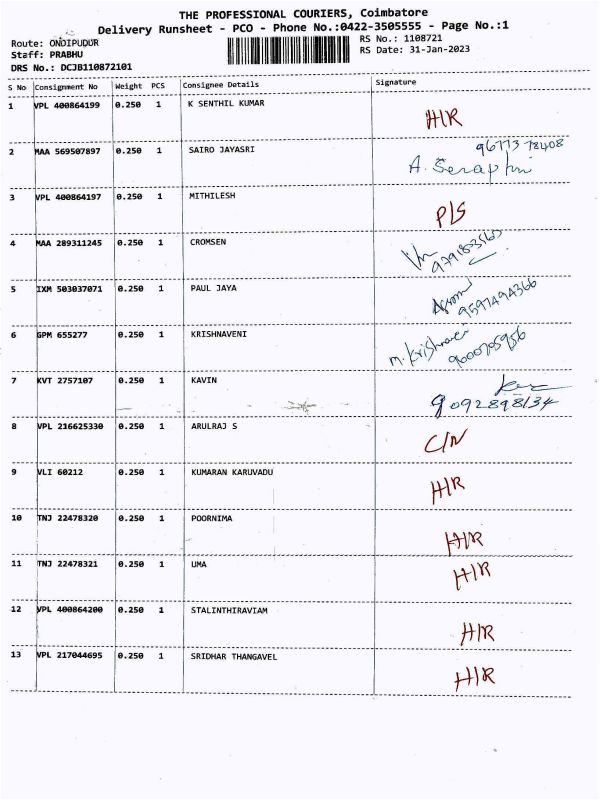 THE PROFESSIONAL COURIERS, Coimbatore
Delivery Runsheet - PCO - Phone No.:0422-3505555 - Page No.:1
Route: ONDIPUDUR
RS No.: 1108721
Staff: PRABHU
RS Date: 31-Jan-2023
DRS No.: DCJB110872101
S No Consignment No Weight PCS Consignee Details Signature
1 VPL 400864199 0.250 1 K SENTHIL KUMAR H/R
2 MAA 569507897 0.250 1 SAIRO JAYASRI 96773 78408
A. Seraphi
3 VPL 400864197 0.250 1 MITHILESH P/S
4 MAA 289311245 0.250 1 CROMSEN
5 IXM 503037071 0.250 1 PAUL JAYA 9597494366
6 GPM 655277 0.250 1 KRISHNAVENI M. Krishnaveni 9600705956
7 KVT 2757107 0.250 1 KAVIN
9092898134
8 VPL 216625330 0.250 1 ARULRAJ S C/N
9 VLI 60212 0.250 1 KUMARAN KARUVADU H/R
10 TNJ 22478320 0.250 1 POORNIMA H/R
11 TNJ 22478321 0.250 1 UMA H/R
12 VPL 400864200 0.250 1 STALINTHIRAVIAM H/R
13 VPL 217044695 0.250 1 SRIDHAR THANGAVEL H/R